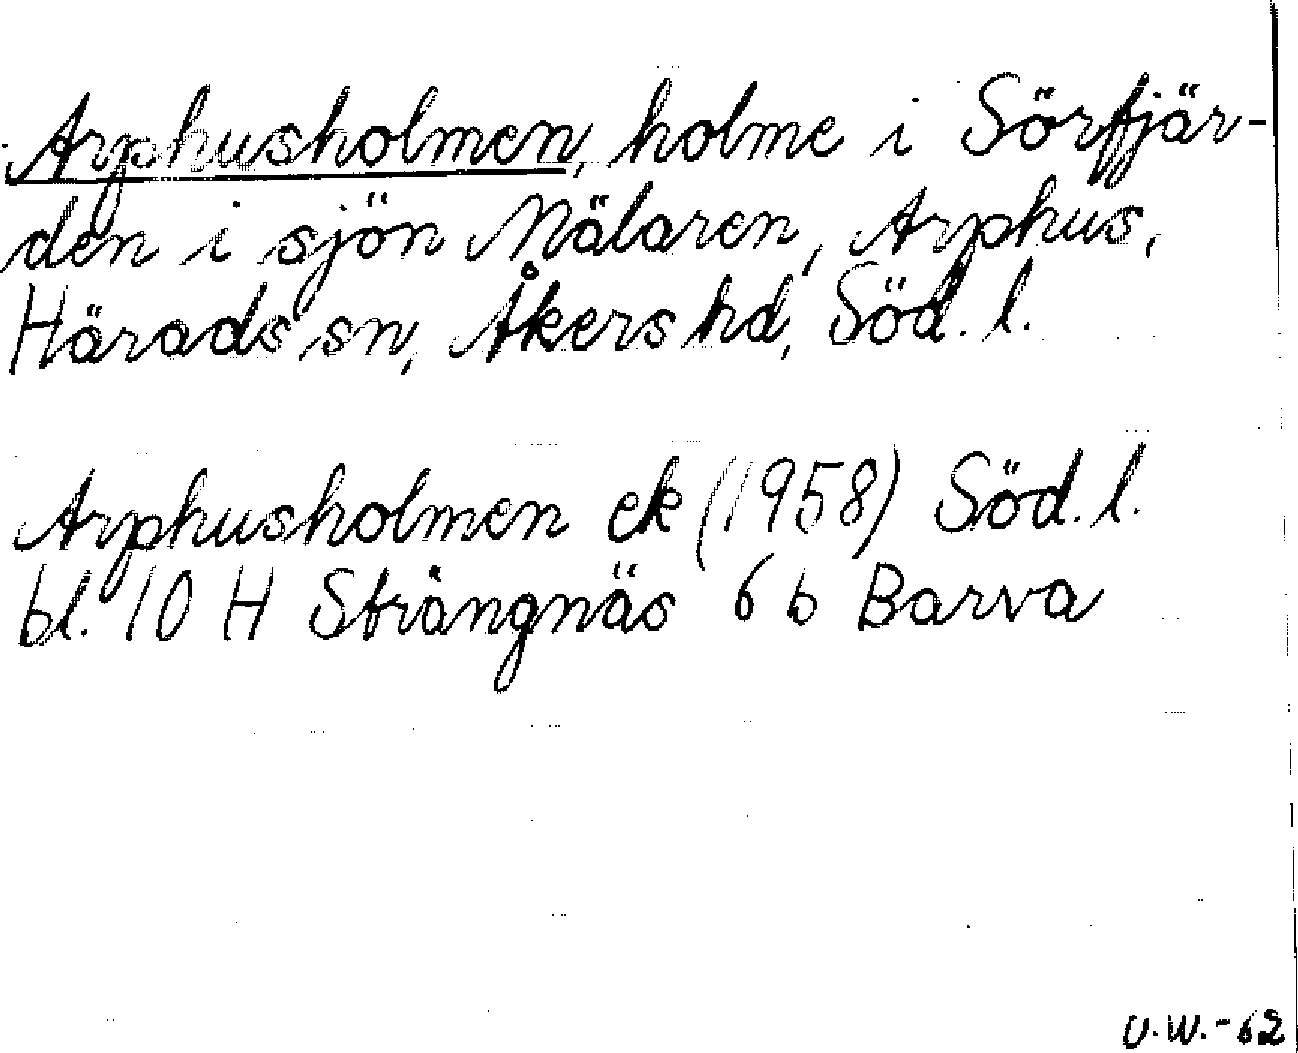 Arphusholmen, holme i Sörfjär-
den i sjön Mälaren, Arphus,
Härads sn, Åkers hd, Söd. l.
Arphusholmen ek (1958) Söd. l.
bl. 10 H Strängnäs 6 b Barva
U.W.-62